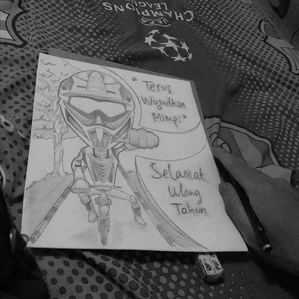 UEFA
CHAMPIONS
LEAGUE
"Terus
Wujudkan
Mimpi"
Selamat
Ulang
Tahun